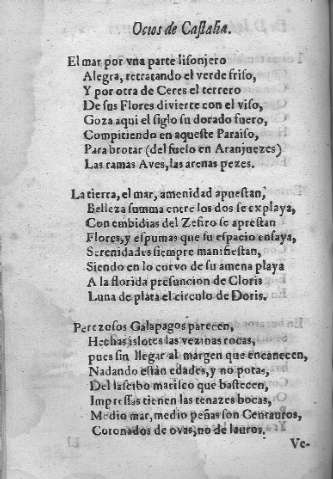 Ocios de Castalia.
El mar por vna parte lisonjero
Alegra, retratando el verde friso,
Y por otra de Ceres el terrero
De sus Flores divierte con el viso,
Goza aqui el siglo su dorado fuero,
Compitiendo en aqueste Paraiso,
Para brotar (del suelo en Aranjuezes)
Las ramas Aves, las arenas pezes.
La tierra, el mar, amenidad apuestan,
Belleza summa entre los dos se explaya,
Con embidias del Zefiro se aprestan
Flores, y espumas que su espacio ensaya,
Serenidades siempre manifiestan,
Siendo en lo corvo de su amena playa
A la florida presuncion de Cloris
Luna de plata el circulo de Doris.
Perezosos Galapagos parecen,
Hechas islotes las vezinas rocas,
pues sin llegar al margen que encanecen,
Nadando están edades, y no potas,
Del lascibo marisco que bastecen,
Impressas tienen las tenazes bocas,
Medio mar, medio peñas son Centauros,
Coronados de ovas, no de lauros.
Ve-